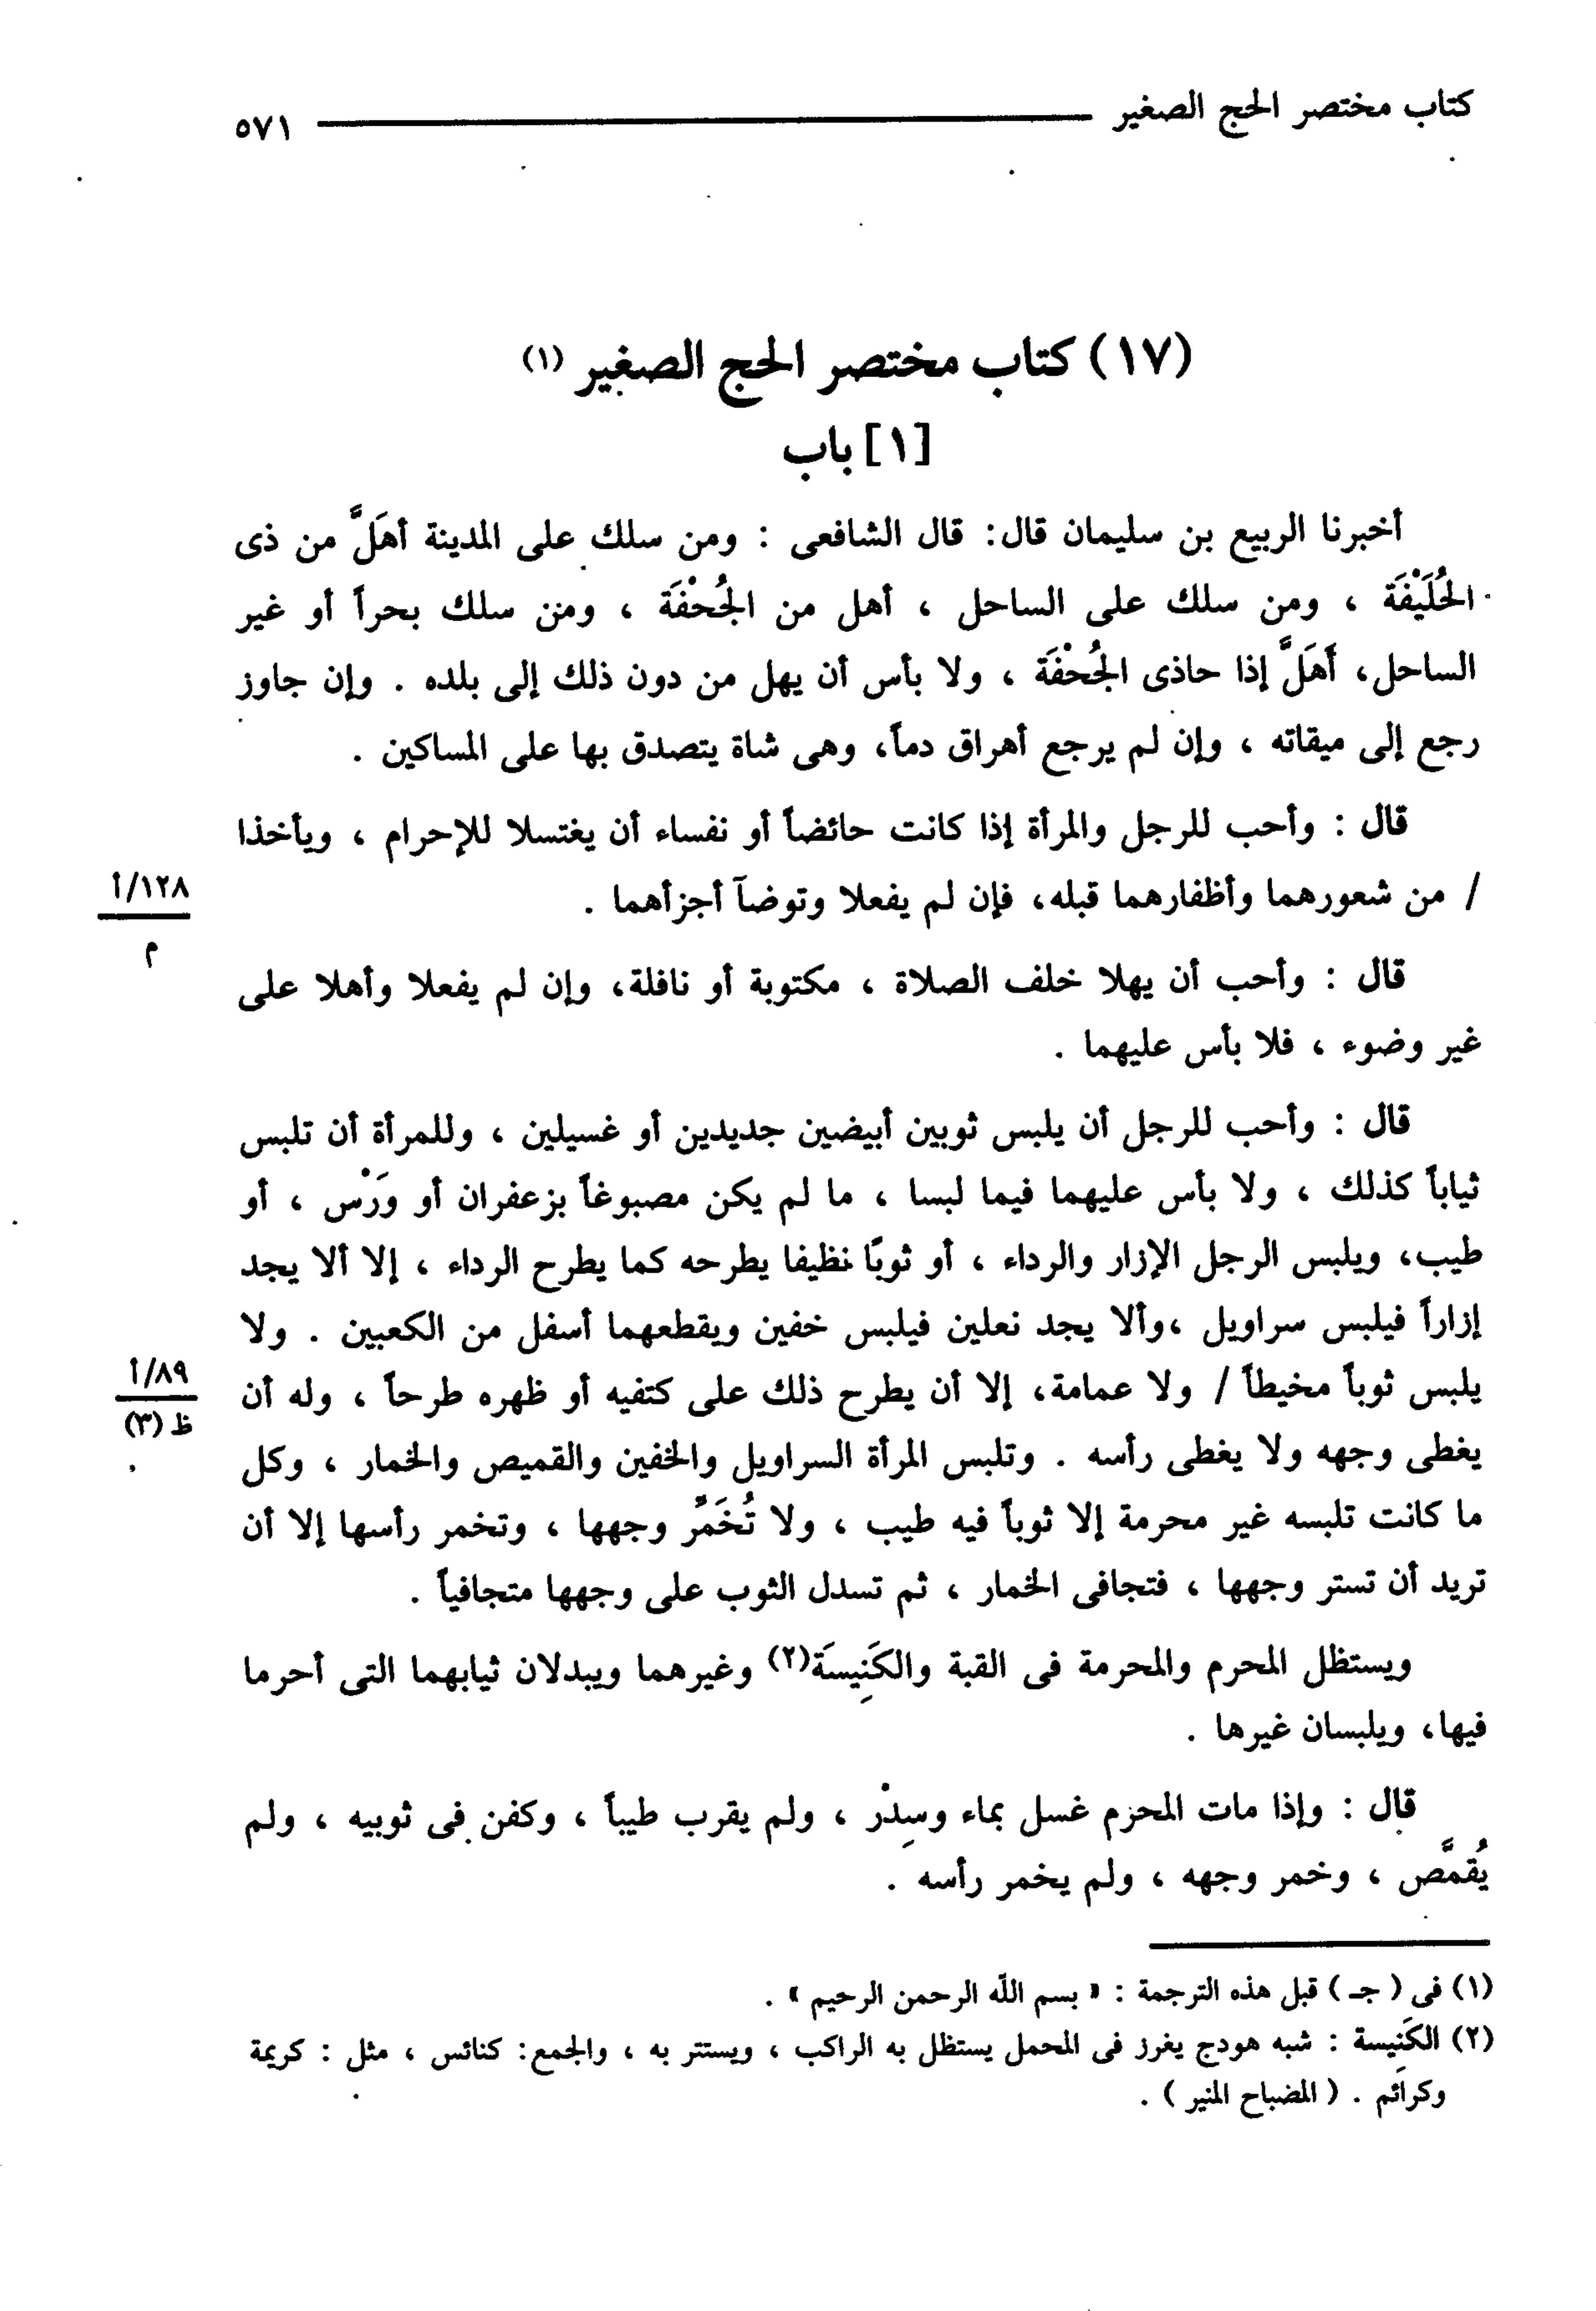 كتاب مختصر الحج الصغير ٥٧١
(١٧) كتاب مختصر الحج الصغير (١)
[١] باب
أخبرنا الربيع بن سليمان قال: قال الشافعى : ومن سلك على المدينة أهَلَّ من ذى
الحُلَيْفَة ، ومن سلك على الساحل ، أهل من الجُحْفَة ، ومن سلك بحراً أو غير
الساحل، أَهَلَّ إذا حاذى الجُحْفَة ، ولا بأس أن يهل من دون ذلك إلى بلده . وإن جاوز
رجع إلى ميقاته ، وإن لم يرجع أهراق دماً، وهى شاة يتصدق بها على المساكين .
قال : وأحب للرجل والمرأة إذا كانت حائضاً أو نفساء أن يغتسلا للإحرام ، ويأخذا
/ من شعورهما وأظفارهما قبله، فإن لم يفعلا وتوضآ أجزأهما .
١٢٨/أ
م
قال : وأحب أن يهلا خلف الصلاة ، مكتوبة أو نافلة، وإن لم يفعلا وأهلا على
غير وضوء ، فلا بأس عليهما .
قال : وأحب للرجل أن يلبس ثوبين أبيضين جديدين أو غسيلين ، وللمرأة أن تلبس
ثياباً كذلك ، ولا بأس عليهما فيما لبسا ، ما لم يكن مصبوغاً بزعفران أو وَرْس ، أو
طيب، ويلبس الرجل الإزار والرداء ، أو ثوبًا نظيفا يطرحه كما يطرح الرداء ، إلا ألا يجد
إزاراً فيلبس سراويل ،وألا يجد نعلين فيلبس خفين ويقطعهما أسفل من الكعبين . ولا
يلبس ثوباً مخيطاً / ولا عمامة، إلا أن يطرح ذلك على كتفيه أو ظهره طرحاً ، وله أن
٨٩/أ
ظ (٣)
يغطى وجهه ولا يغطى رأسه . وتلبس المرأة السراويل والخفين والقميص والخمار ، وكل
ما كانت تلبسه غير محرمة إلا ثوباً فيه طيب ، ولا تُخَمِّر وجهها ، وتخمر رأسها إلا أن
تريد أن تستر وجهها ، فتجافى الخمار ، ثم تسدل الثوب على وجهها متجافياً .
ويستظل المحرم والمحرمة فى القبة والكَنِيسَة(٢) وغيرهما ويبدلان ثيابهما التى أحرما
فيها، ويلبسان غيرها .
قال : وإذا مات المحرم غسل بماء وسِدْر ، ولم يقرب طيباً ، وكفن فى ثوبيه ، ولم
يُقَمَّص ، وخمر وجهه ، ولم يخمر رأسه .
(١) فى ( جـ ) قبل هذه الترجمة : « بسم الله الرحمن الرحيم » .
(٢) الكَنِيسة : شبه هودج يغرز فى المحمل يستظل به الراكب ، ويستتر به ، والجمع: كنائس ، مثل : كريمة
وكرائم . ( المصباح المنير ) .